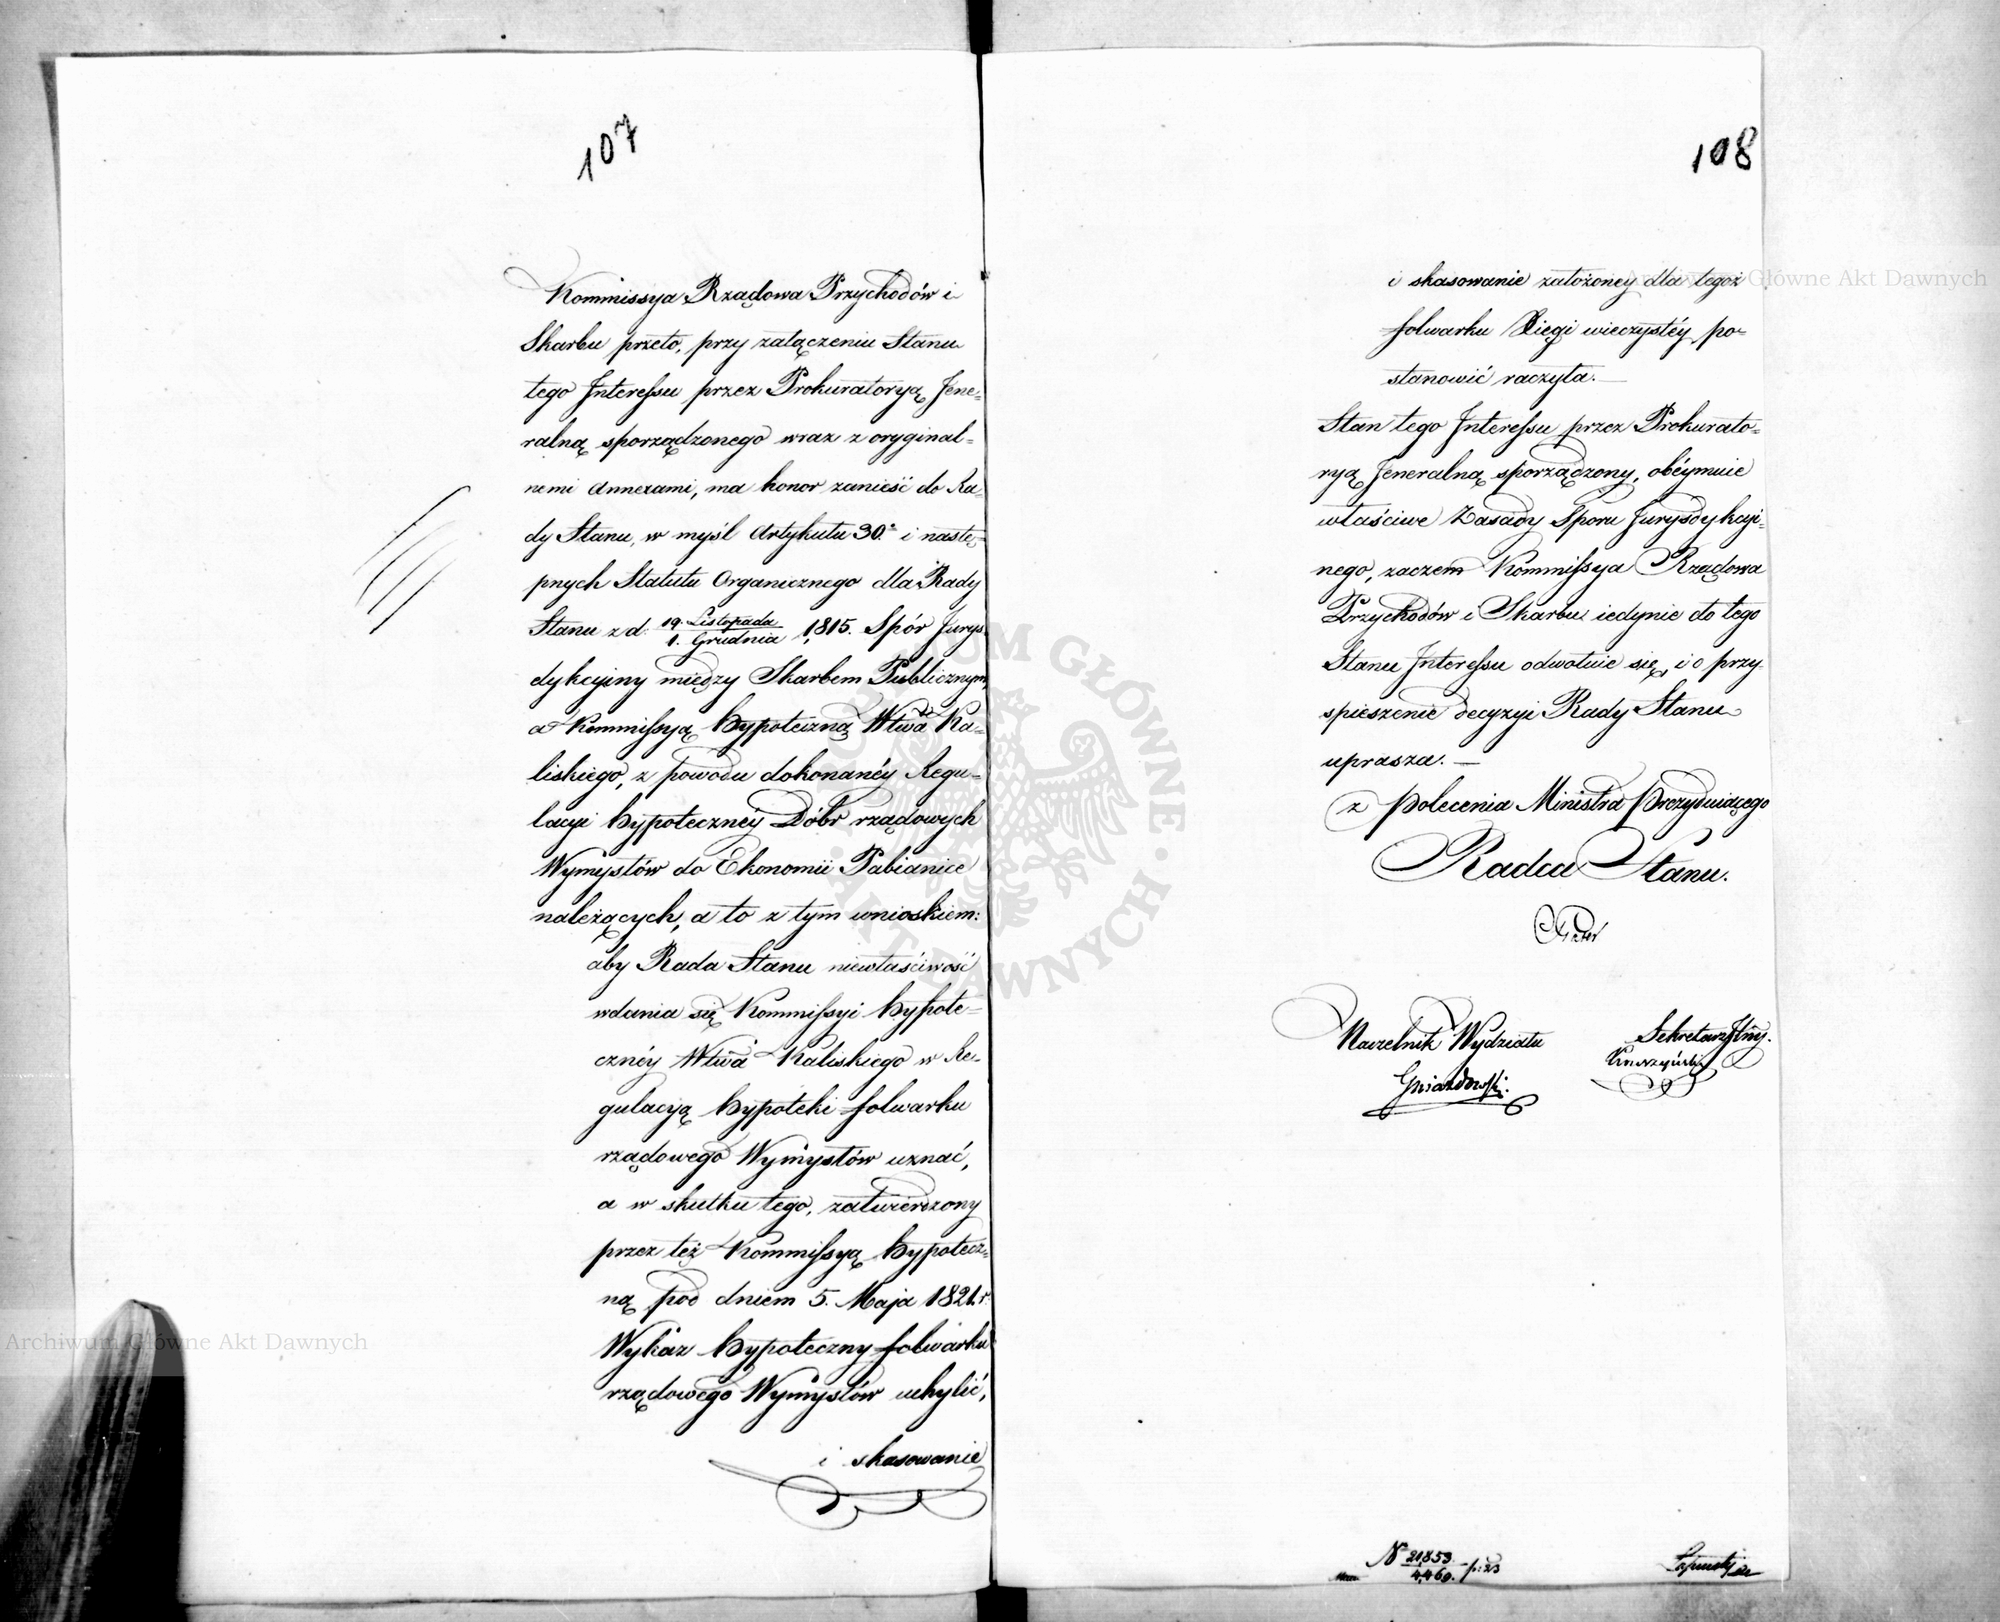 107
Kommissya Rządowa Przychodów i
Skarbu przeto, przy załączeniu Stanu
tego Interessu przez Prokuratoryą Jene-
ralną sporządzonego wraz z oryginal-
nemi annexami, ma honor zanieść do Ra-
dy Stanu, w myśl Artykułu 30.° i nastę-
pnych Statutu Organicznego dla Rady
Stanu z d: 19. Listopada / 1. Grudnia 1,815. Spór Jurys-
dykcyiny między Skarbem Publicznym,
a Kommissyą Hypoteczną Wtwa Ka-
liskiego, z powodu dokonanéy Regu-
lacyi hypotecznéy Dóbr rządowych
Wymysłów do Ekonomii Pabianice
należących, a to z tym wnioskiem:
aby Rada Stanu niewłaściwość
wdania się Kommissyi Hypote-
cznéy Wtwa Kaliskiego w Re-
gulacyą hypoteki folwarku
rządowego Wymysłów uznać,
a w skutku tego, zatwierdzony
przez też Kommissyą Hypotecz-
ną pod dniem 5. Maja 1821.r
Wykaz hypoteczny folwarku
rządowego Wymysłów uchylić,
i skasowanie
108
i skasowanie założoney dla tegoż
folwarku Xięgi wieczystéy po-
stanowić raczyła.—
Stan tego Interessu przez Prokurato-
ryą Jeneralną sporządzony, obéymuie
właściwe Zasady Sporu Jurysdykcyi-
nego, zaczem Kommissya Rządowa
Przychodów i Skarbu iedynie do tego
Stanu Interessu odwołuie się, i o przy-
spieszenie decyzyi Rady Stanu
uprasza.—
z polecenia Ministra Prezyduiącego
Radca Stanu.
Naczelnik Wydziału
Gniazdowski.
Sekretarz Jlny.
N° 21,853 / 4,460.
Archiwum Główne Akt Dawnych
Archiwum Główne Akt Dawnych
ARCHIWUM GŁÓWNE · AKT DAWNYCH ·